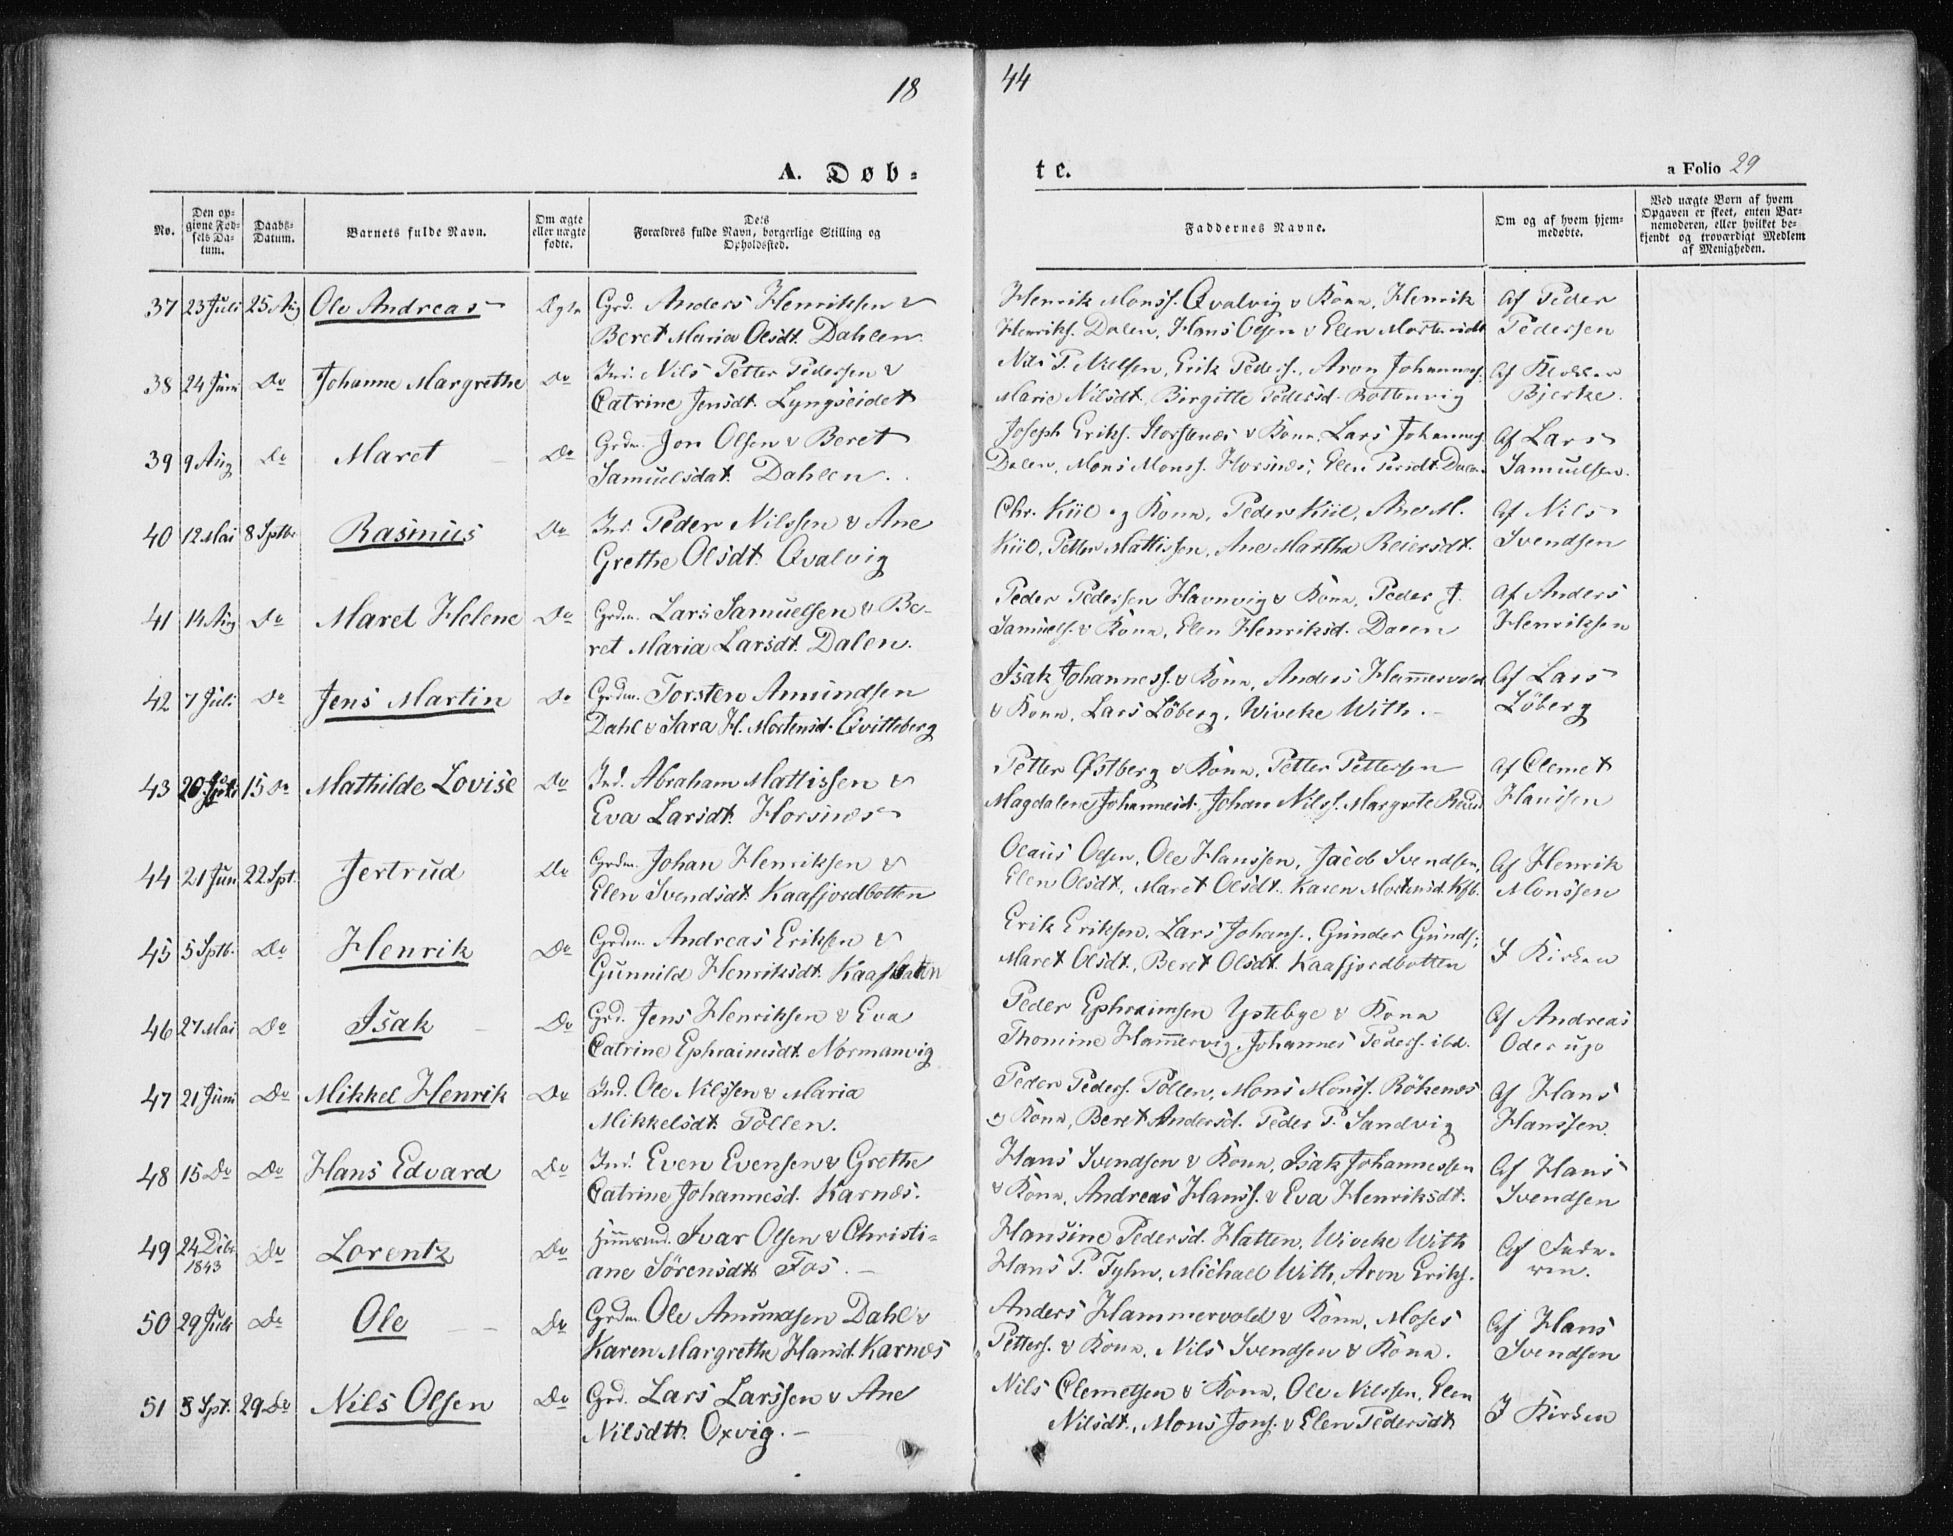 18
44
A. Døb-
te.
a Folio 29
No.
Den op-
givne Fød-
sels Da-
tum.
Daabs-
Datum.
Barnets fulde Navn.
Om ægte
eller uægte
fødte.
Dets
Forældres fulde Navn, borgerlige Stilling og
Opholdssted.
Faddernes Navne.
Om og af hvem hjem-
medøbte.
Ved uægte Børn af hvem
Opgaven er skeet, enten Bar-
nemoderen, eller hvilket be-
kjendt og troværdigt Medlem
af Menigheden.
37 23 Juli 25 Aug Ole Andreas Ægte Grd. Anders Henriksen &
Beret Maria Olsdt. Dahlen
Henrik Monss. Qvalvig & Kona, Henrik
Henriks. Dalen, Hans Olsen & Elen Mortensdt
Af Peder
Pedersen
38 24 Juni Do Johanne Margrethe Do Ind. Nils Petter Pedersen &
Catrine Jensdt. Lyngseidet
Nils P. Nielsen, Erik Peders., Aron Johannes.
Marie Nilsdt, Birgitte Pedersd. Rottenvig
Af Klokker
Bjerke.
39 9 Aug Do Maret Do Grdm. Jon Olsen & Beret
Samuelsdat. Dahlen.
Joseph Eriks. Horsenes & Kona, Lars Johannes.
Dalen, Mons Monss. Horsnes, Elen Persdt. Dalen
Af Lars
Samuelsen.
40 12 Mai 8 Septbr Rasmus Do Ind. Peder Nilssen & Ane
Grethe Olsdt. Qvalvig
Chr. Kiil og Kona, Peder Kiil, Ane M.
Kiil, Petter Mattissen, Ane Martha Reiersdt.
Af Nils
Svendsen
41 14 Aug Do Maret Helene Do Grdm. Lars Samuelsen & Be-
ret Maria Larsdt. Dalen.
Peder Pedersen Havnvig & Kona, Peder J.
Samuels. & Kona, Elen Henriksd. Dalen
Af Anders
Henriksen
42 7 Juli Do Jens Martin Do Grdm. Torsten Amundsen
Dahl & Sara H. Mortensd. Qvitteberg
Isak Johanness. & Kona, Anders Hammervold
& Kona, Lars Löberg, Wiveke With.
Af Lars
Löberg
43 20 15 Do Mathilde Lovise Do Ind. Abraham Mattissen &
Eva Larsdt. Horsnes
Petter Østberg & Kona, Petter Pettersen
Magdalene Johannesd., Johan Nilss. Margrete
Af Clemet
Hanssen
44 21 Jun 22 Spt. Jertrud Do Grdm. Johan Henriksen &
Elen Svendsdt. Kaafjordbotten
Olaus Olsen, Ole Hanssen, Jacob Svendsen,
Elen Olsdt, Maret Olsdt. Karen Mortensd. Kfb.
Af Henrik
Monssen
45 5 Septb. Do Henrik Do Grdm. Andreas Eriksen &
Gunnild Henriksdt. Kaafbotten
Erik Eriksen, Lars Johans., Gunder Gunds.,
Maret Olsdt., Beret Olsdt. Kaafjordbotten
I Kirken
46 27 Mai Do Isak Do Grd. Jens Henriksen & Eva
Catrine Ephraimsdt. Normanvig
Peder Ephraimsen Ystebye & Kona
Thomine Hammervig, Johannes Peders. ibd.
Af Andreas
47 21 Juni Do Mikkel Henrik Do Ind. Ole Nilssen & Maria
Mikkelsdt. Pollen.
Peder Peders. Pollen, Mons Monss. Rökenes
& Kona, Beret Andersd. Peder P. Sandvig
Af Hans
Hanssen.
48 15 Do Do Hans Edvard Do Ind. Even Evensen & Grethe
Catrine Johannesd. Karnes.
Hans Svendsen & Kona, Isak Johannessen
& Kona, Andreas Hanss. & Eva Henriksdt.
Af Hans
Svendsen
49 24 Debr 1843 Do Lorentz Do Huusmd. Ivar Olsen & Christi-
ane Sörensdt Fos.
Hansine Pedersd. Hatten, Wiveke With
Hans P. Fyhn, Michael With, Aron Eriks.
Af Fade-
ren.
50 29 Juli Do Ole Do Grdm. Ole Amundsen Dahl &
Karen Margrethe Hansd. Karnes
Anders Hammervold & Kona, Moses
Petters. & Kona, Nils Svendsen & Kona.
Af Hans
Svendsen
51 5 Spt. 29 Do Nils Olsen Do Grd. Lars Larssen & Ane
Nilsdtt. Oxvig.
Nils Clemetsen & Kona, Ole Nilssen, Elen
Nilsdt., Mons Jons. & Elen Pedersdt
I Kirken